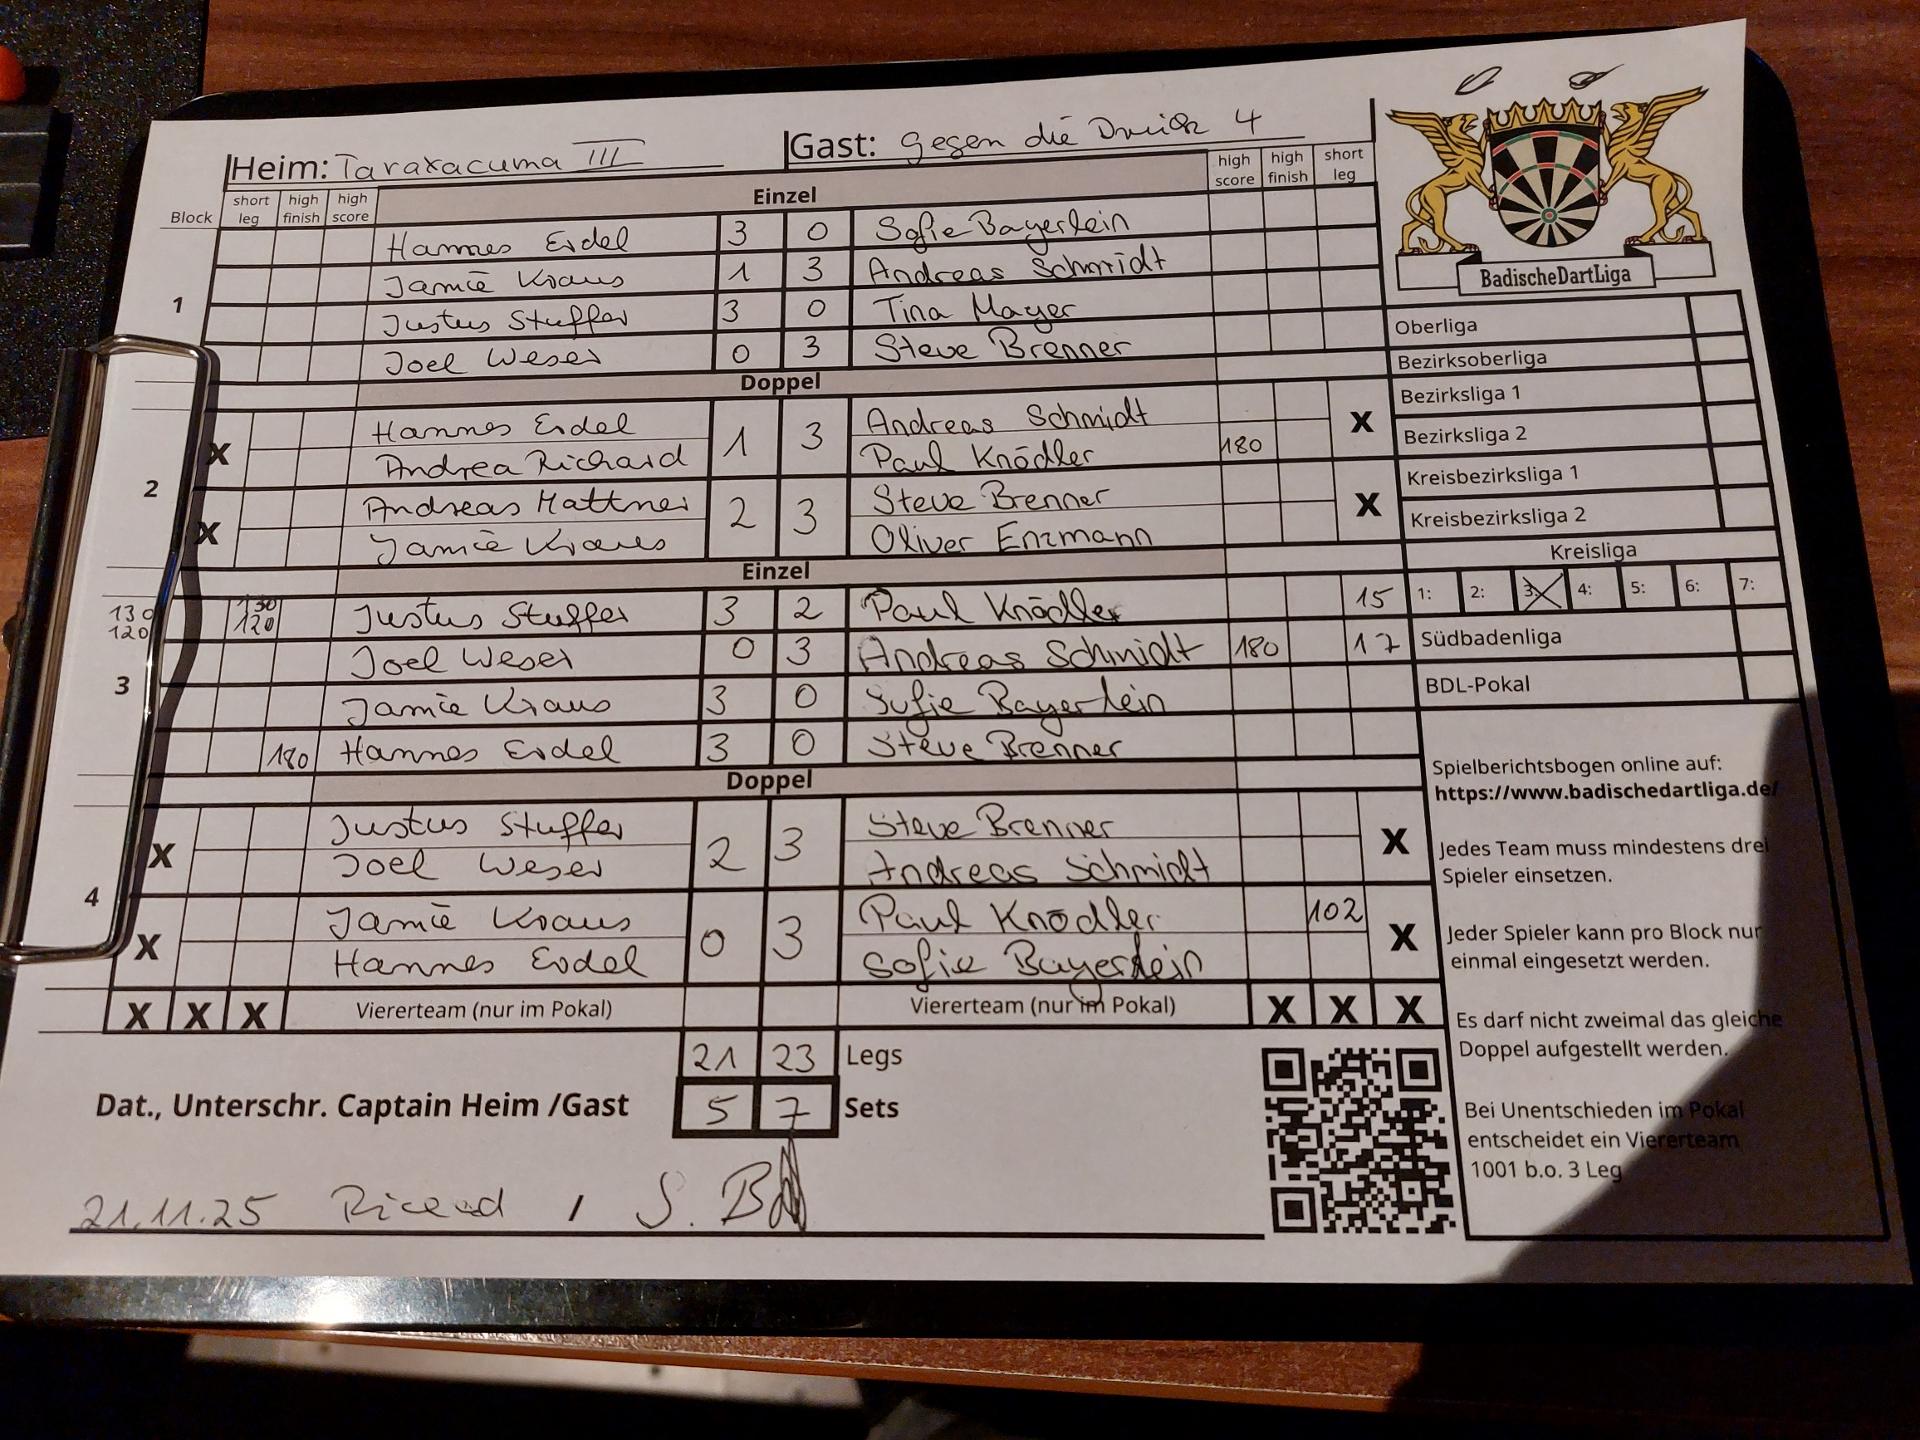 Heim: Taraxacuma III Gast: Gegen die Drück 4
Block short leg high finish high score Einzel high score high finish short leg
1
Hannes Erdel 3 0 Sofie Bayerlein
Jamie Kraus 1 3 Andreas Schmidt
Justus Stuffer 3 0 Tina Mayer
Joel Weser 0 3 Steve Brenner
Doppel
2
X Hannes Erdel 1 3 Andreas Schmidt X
Andrea Richard Paul Knödler 180
X Andreas Mattner 2 3 Steve Brenner X
Jamie Kraus Oliver Enzmann
Einzel
3
130 120 130 120 Justus Stuffer 3 2 Paul Knödler 15
Joel Weser 0 3 Andreas Schmidt 180 17
Jamie Kraus 3 0 Sofie Bayerlein
180 Hannes Erdel 3 0 Steve Brenner
Doppel
4
X Justus Stuffer 2 3 Steve Brenner X
Joel Weser Andreas Schmidt
X Jamie Kraus 0 3 Paul Knödler 102 X
Hannes Erdel Sofie Bayerlein
X X X Viererteam (nur im Pokal) Viererteam (nur im Pokal) X X X
21 23 Legs
Dat., Unterschr. Captain Heim /Gast 5 7 Sets
21.11.25 / S.
BadischeDartLiga
Oberliga
Bezirksoberliga
Bezirksliga 1
Bezirksliga 2
Kreisbezirksliga 1
Kreisbezirksliga 2
Kreisliga
1: 2: 3: 4: 5: 6: 7:
Südbadenliga
BDL-Pokal
Spielberichtsbogen online auf:
https://www.badischedartliga.de/
Jedes Team muss mindestens drei
Spieler einsetzen.
Jeder Spieler kann pro Block nur
einmal eingesetzt werden.
Es darf nicht zweimal das gleiche
Doppel aufgestellt werden.
Bei Unentschieden im Pokal
entscheidet ein Viererteam
1001 b.o. 3 Leg